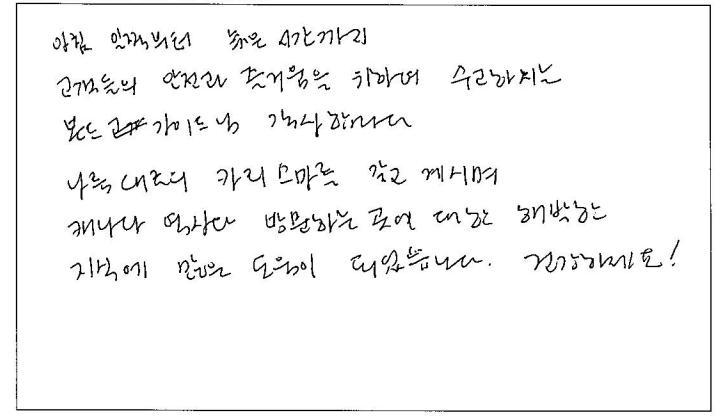 아침 일찍부터 늦은 시간까지
고객들의 안전과 즐거움을 위하여 수고하시는
가이드님 감사합니다
카리스마를 갖고 계시며
캐나다 역사나 방문하는 곳에 대한 해박한
지식에 많은 도움이 되었습니다. 건강하세요!